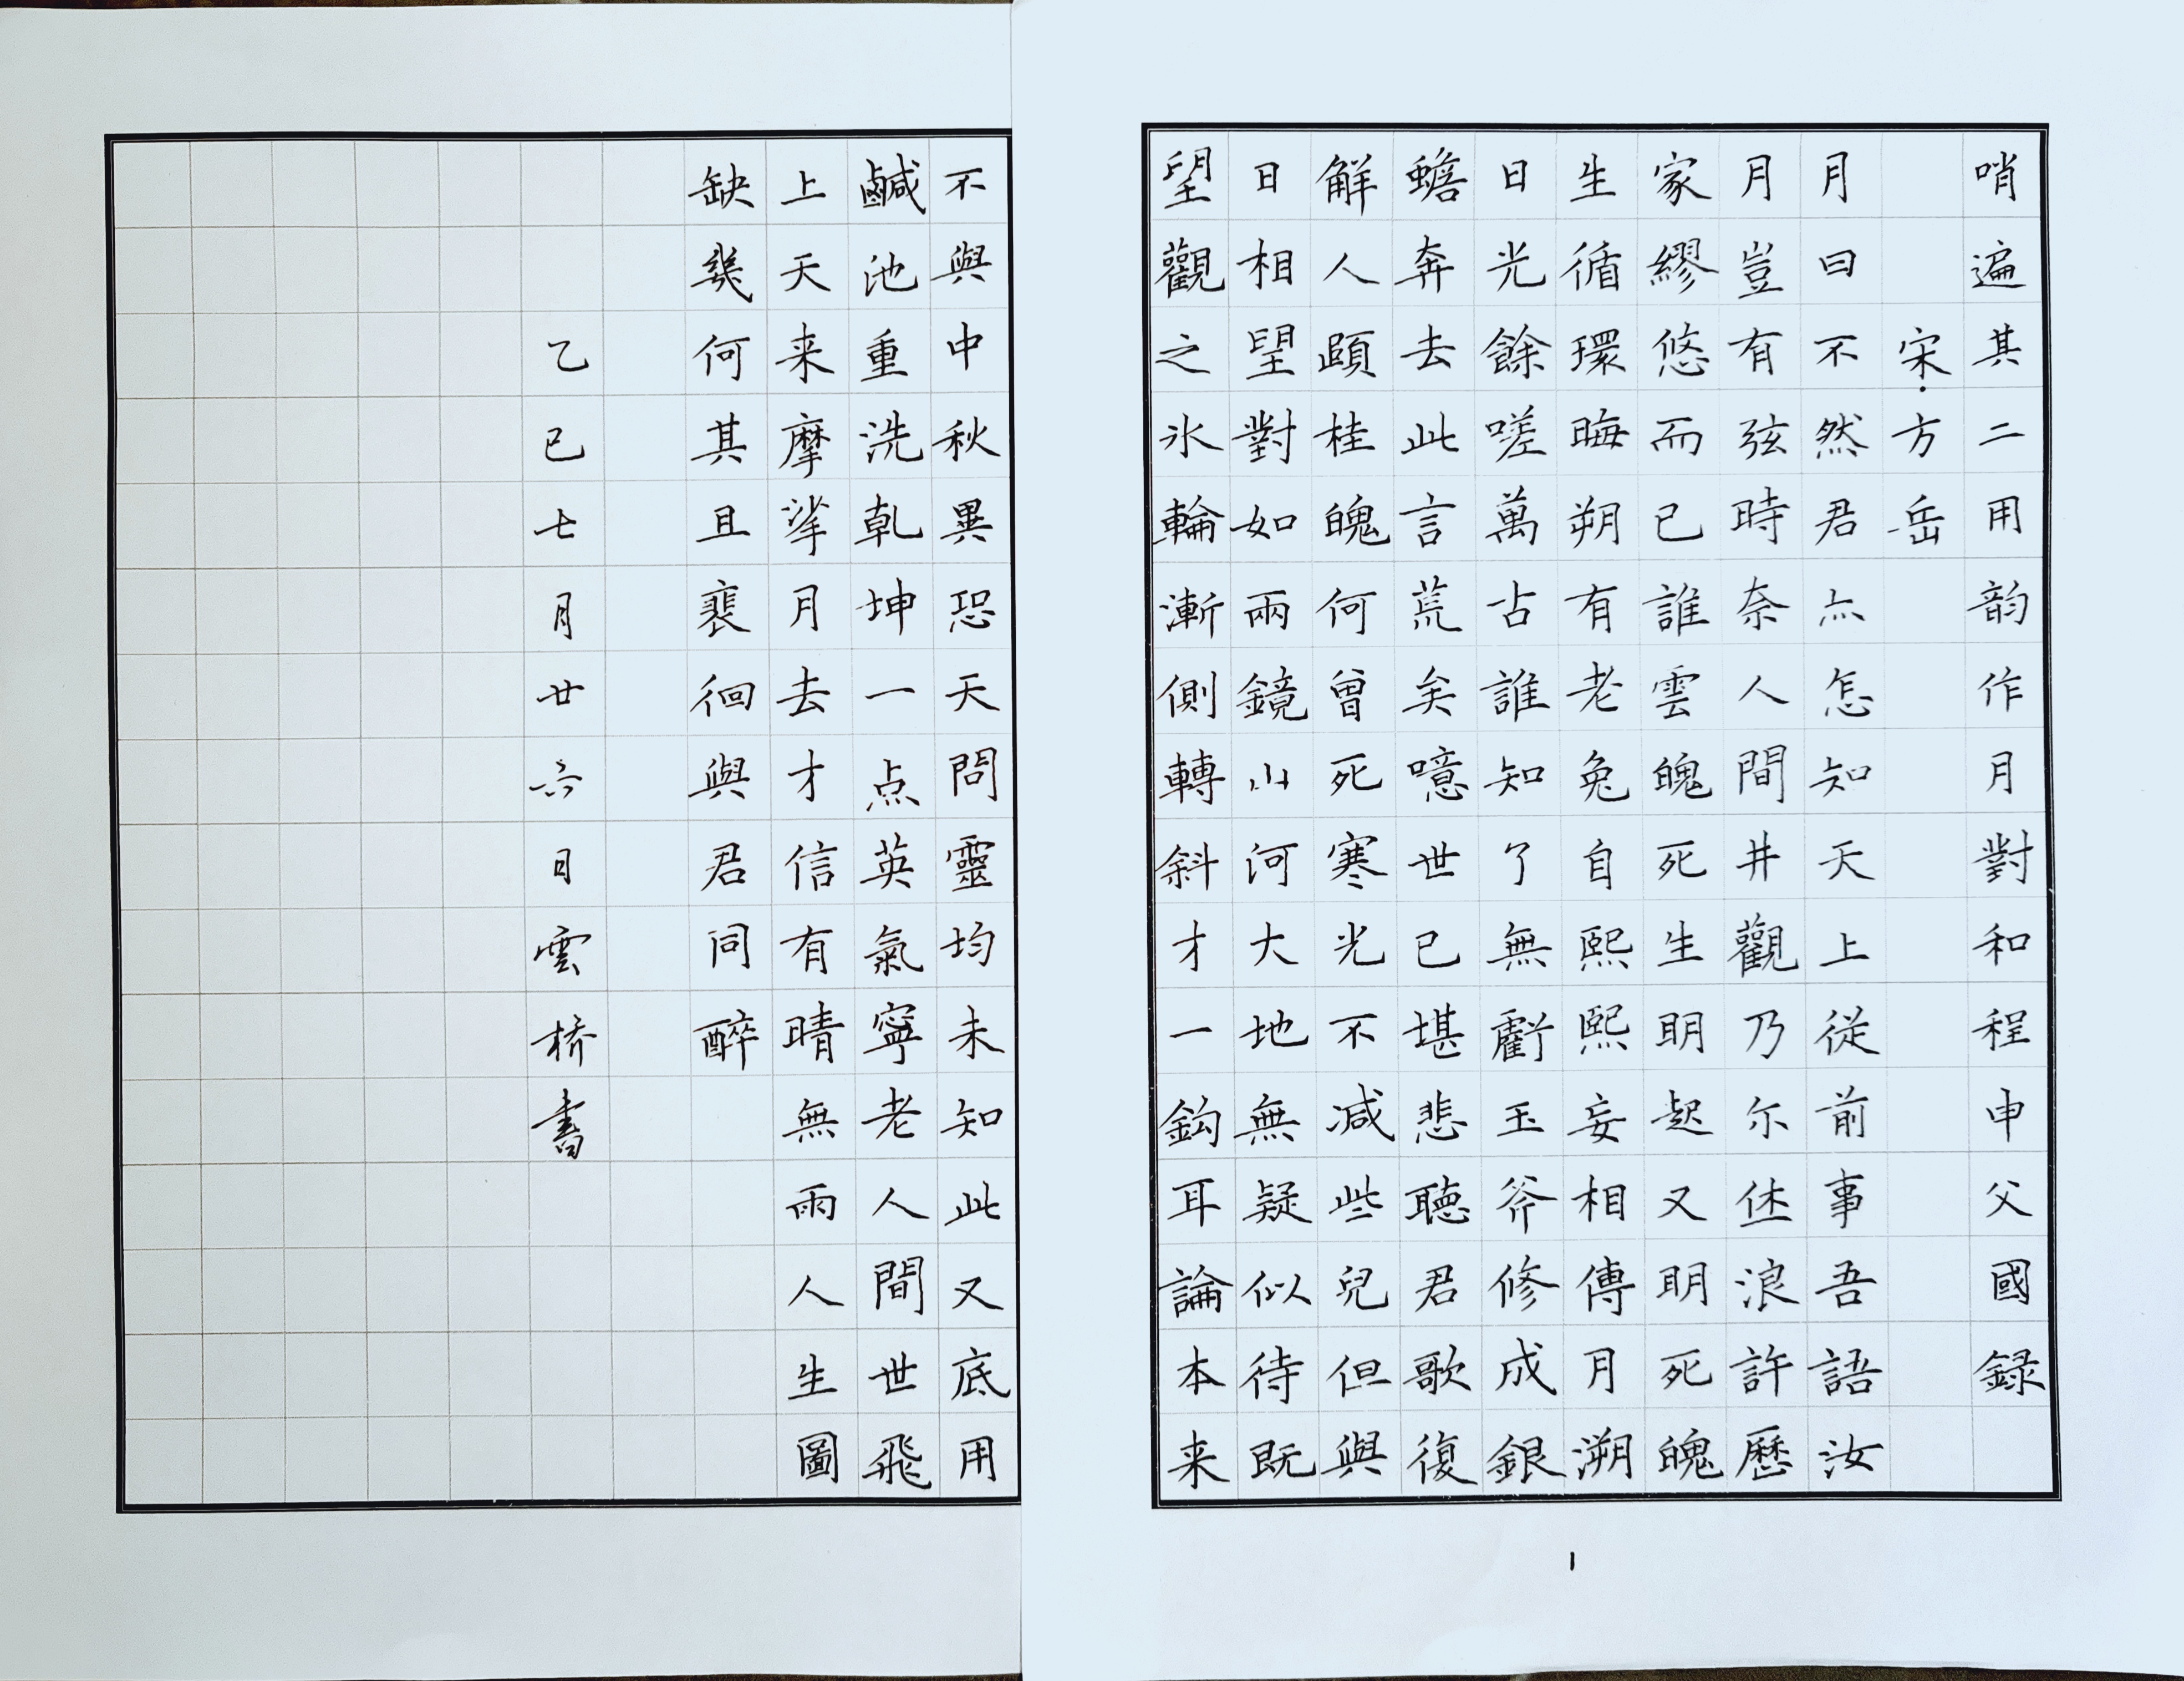 哨遍其二用韵作月對和程申父國録
宋·方岳
月曰不然君亦怎知天上從前事吾語汝
月豈有弦時奈人間井觀乃尔休浪許歷
家繆悠而已誰雲魄死生明起又明死魄
生循環晦朔有老兔自熙熙妄相傳月溯
日光餘嗟萬古誰知了無虧玉斧修成銀
蟾奔去此言荒矣噫世已堪悲聽君歌復
解人頤桂魄何曾死寒光不减些兒但與
日相望對如兩鏡山河大地無疑似待既
望觀之氷輪漸側轉斜才一鈎耳論本来
不與中秋異恐天問靈均未知此又底用
鹹池重洗乾坤一点英氣寧老人間世飛
上天来摩挲月去才信有晴無雨人生圖
缺幾何其且裴徊與君同醉
乙巳七月廿六日雲桥書
1